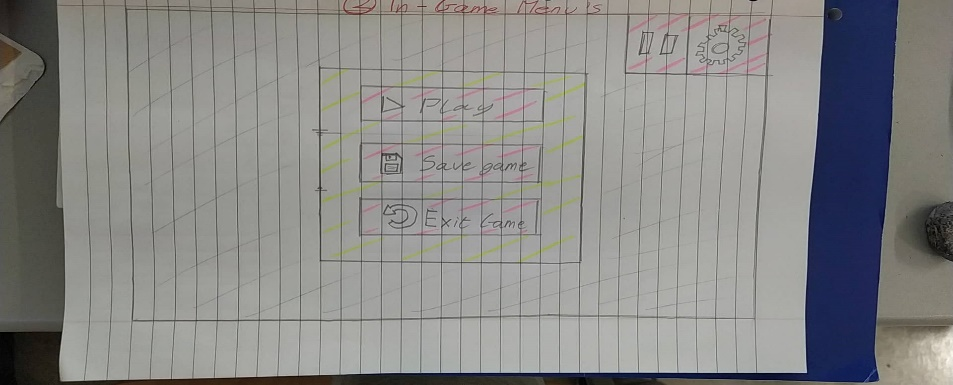 ② In-Game Menu's
Play
Save game
Exit Game